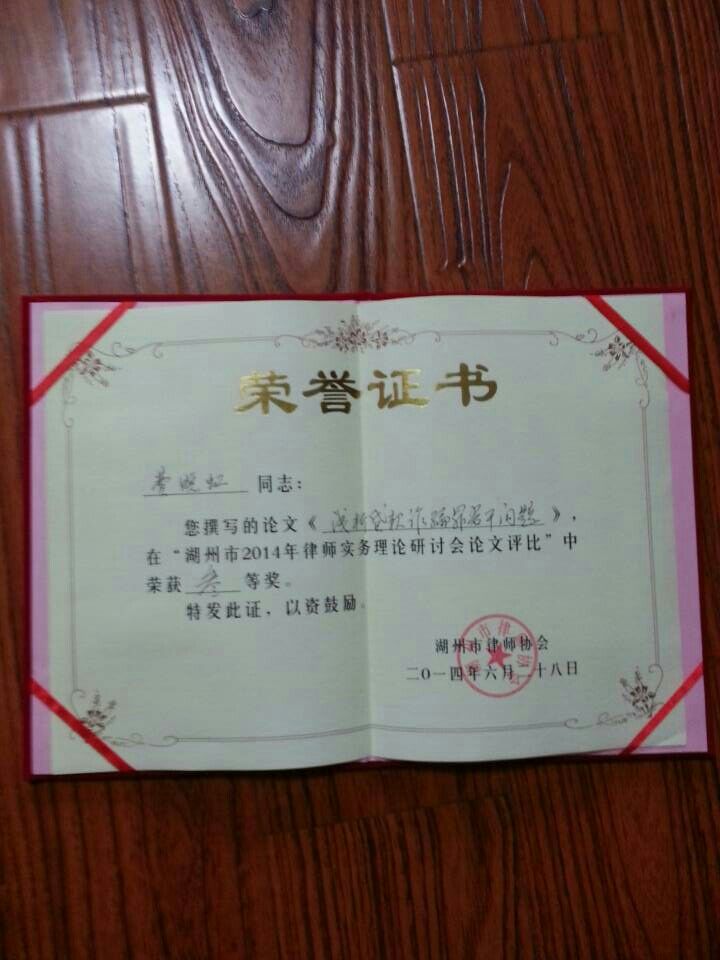 荣誉证书
晓虹 同志:
您撰写的论文《浅析贷款诈骗罪若干问题》,
在“湖州市2014年律师实务理论研讨会论文评比”中
荣获 叁 等奖。
特发此证,以资鼓励。
湖州市律师协会
二〇一四年六月 十八日